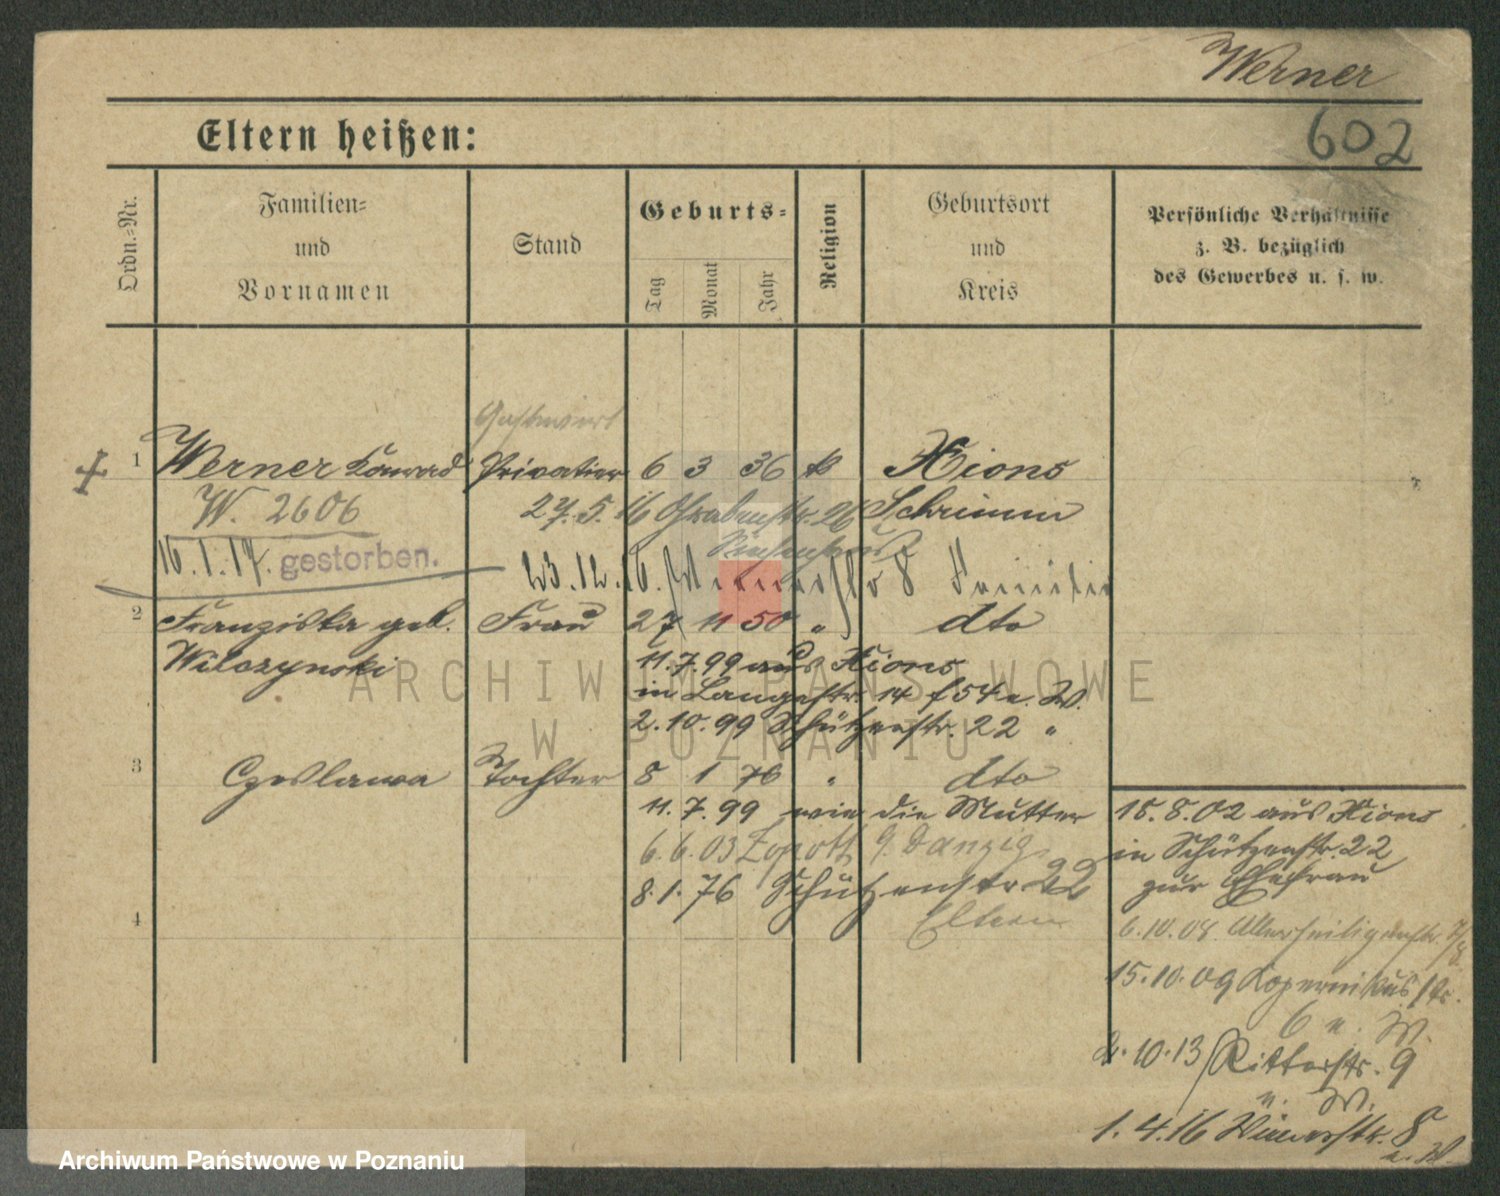 Werner
602
Eltern heißen:
Ordn.-Nr.
Familien-
und
Vornamen
Stand
Geburts-
Tag
Monat
Jahr
Religion
Geburtsort
und
Kreis
Persönliche Verhältnisse
z. B. bezüglich
des Gewerbes u. s. w.
Gastwirt
1 Werner Konrad Privatier 6 3 36 Xions
W. 2606 27.5.16 Grabenstr. 26 Schrimm
16.1.17. gestorben.
23.12.16. 8 Familie
2 Franziska geb. Frau 27 11 50 " dto
Wilczynski 11.7.99 aus Xions
in Langestr. 14 b. W.
2.10.99 Schützenstr. 22 "
3 Czeslawa Tochter 8 1 76 " dto
11.7.99 wie die Mutter
6.6.03 Zopott b. Danzig
8.1.76 Schützenstr 22
Eltern
4
15.8.02 aus Xions
in Schützenstr. 22
zur Ehefrau
6.10.08. Allerheiligenstr.
15.10.09 Kopernikusstr.
6 u. W.
2.10.13 Ritterstr. 9
u. W.
1.4.16 8
u. W.
ARCHIWUM PAŃSTWOWE
W POZNANIU
Archiwum Państwowe w Poznaniu